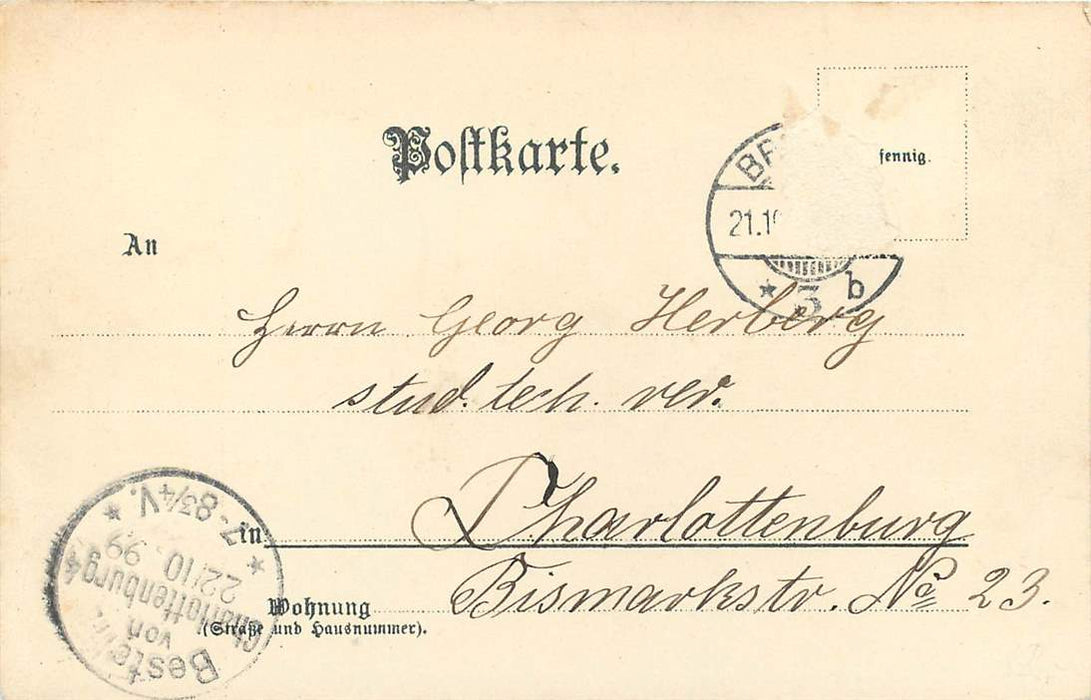 Postkarte.
fennig.
BR
21.10
* 3 b
An
Herrn Georg Herberg
stud. tech. rer.
in Charlottenburg
Wohnung Bismarkstr. No 23.
(Straße und Hausnummer).
Bestellt
von
Charlottenburg 4
22/10 99
* 7-8¾V. *